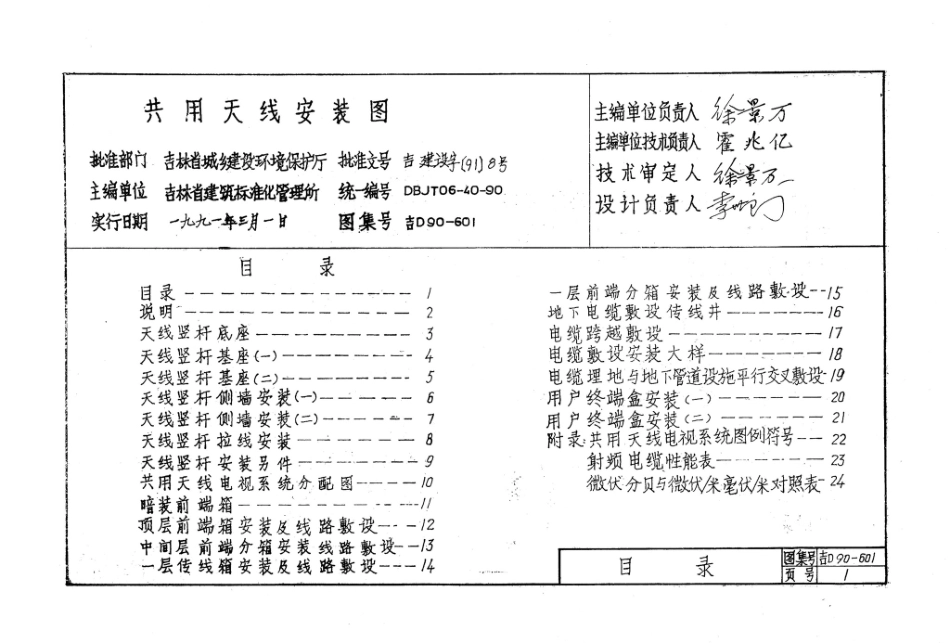 共用天线安装图
批准部门 吉林省城乡建设环境保护厅 批准文号 吉建设字(91)8号
主编单位 吉林省建筑标准化管理所 统一编号 DBJT06-40-90
实行日期 一九九一年三月一日 图集号 吉D90-601
主编单位负责人 徐景万
主编单位技术负责人 霍兆亿
技术审定人 徐景万
设计负责人
目录
目录 1
说明 2
天线竖杆底座 3
天线竖杆基座(一) 4
天线竖杆基座(二) 5
天线竖杆侧墙安装(一) 6
天线竖杆侧墙安装(二) 7
天线竖杆拉线安装 8
天线竖杆安装另件 9
共用天线电视系统分配图 10
暗装前端箱 11
顶层前端箱安装及线路敷设 12
中间层前端分箱安装线路敷设 13
一层传线箱安装及线路敷设 14
一层前端分箱安装及线路敷设 15
地下电缆敷设传线井 16
电缆跨越敷设 17
电缆敷设安装大样 18
电缆埋地与地下管道设施平行交叉敷设 19
用户终端盒安装(一) 20
用户终端盒安装(二) 21
附录:共用天线电视系统图例符号 22
射频电缆性能表 23
微伏分贝与微伏/米毫伏/米对照表 24
目录 图集号 吉D90-601
页号 1